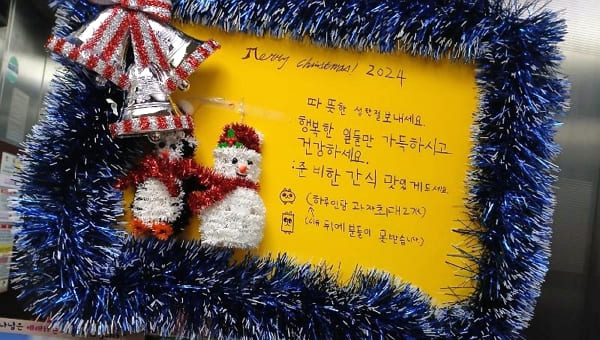 Merry Christmas! 2024
따뜻한 성탄절보내세요.
행복한 일들만 가득하시고
건강하세요.
:준비한 간식 맛있게드세요.
(하루인당 과자최대2개)
뒤에 분들이 못받습니다)